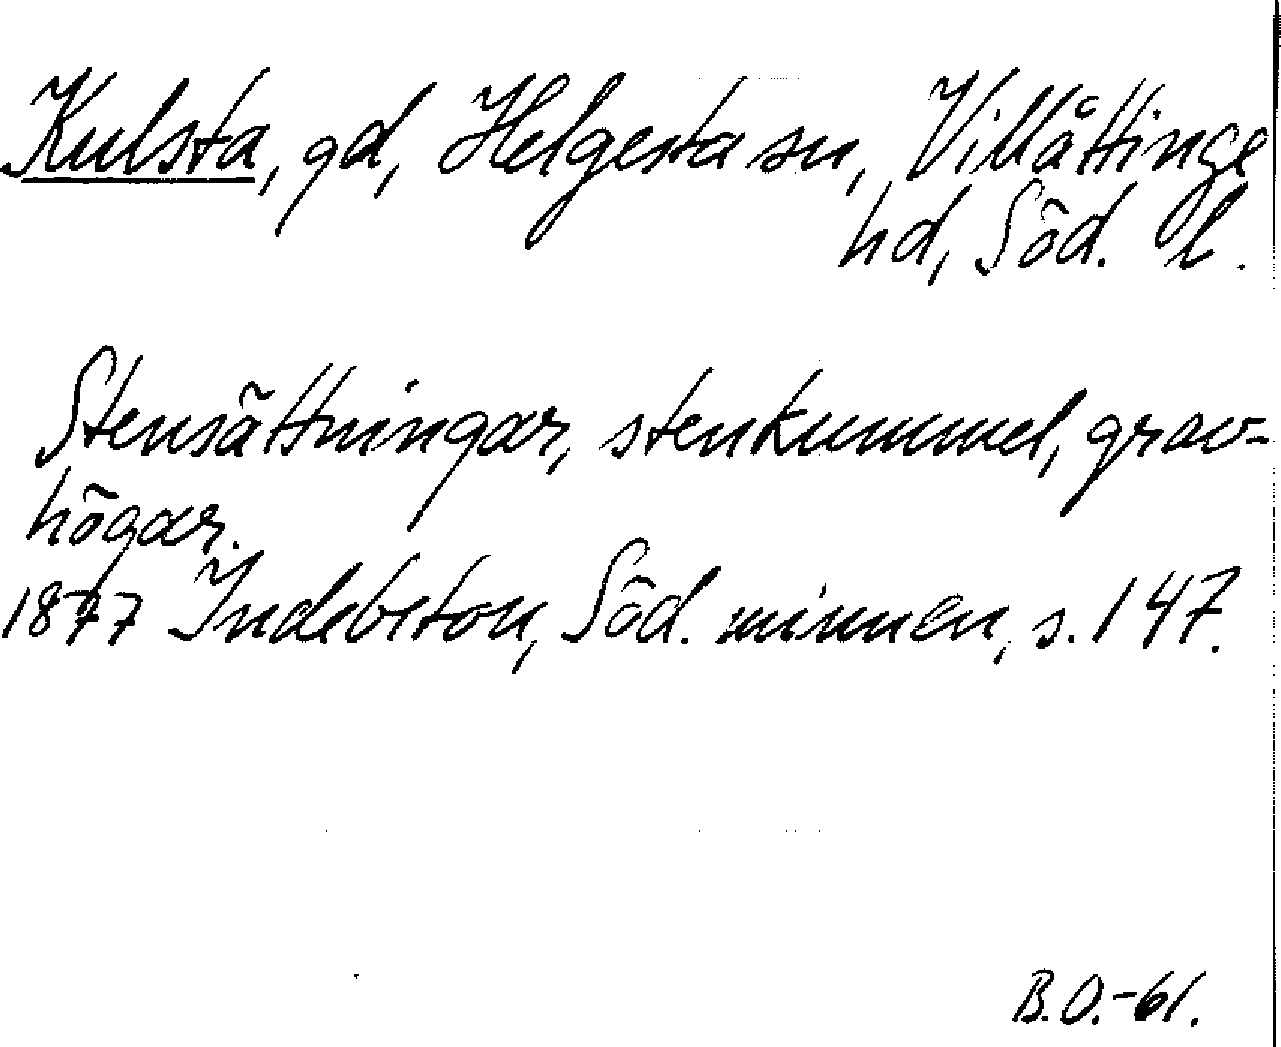 Kulsta, gd, Helgesta sn, Villåttinge
hd, Söd. l.
Stensättningar, stenkummel, grav-
högar.
1877 Indebetou, Söd. minnen, s. 147.
B.O.-61.